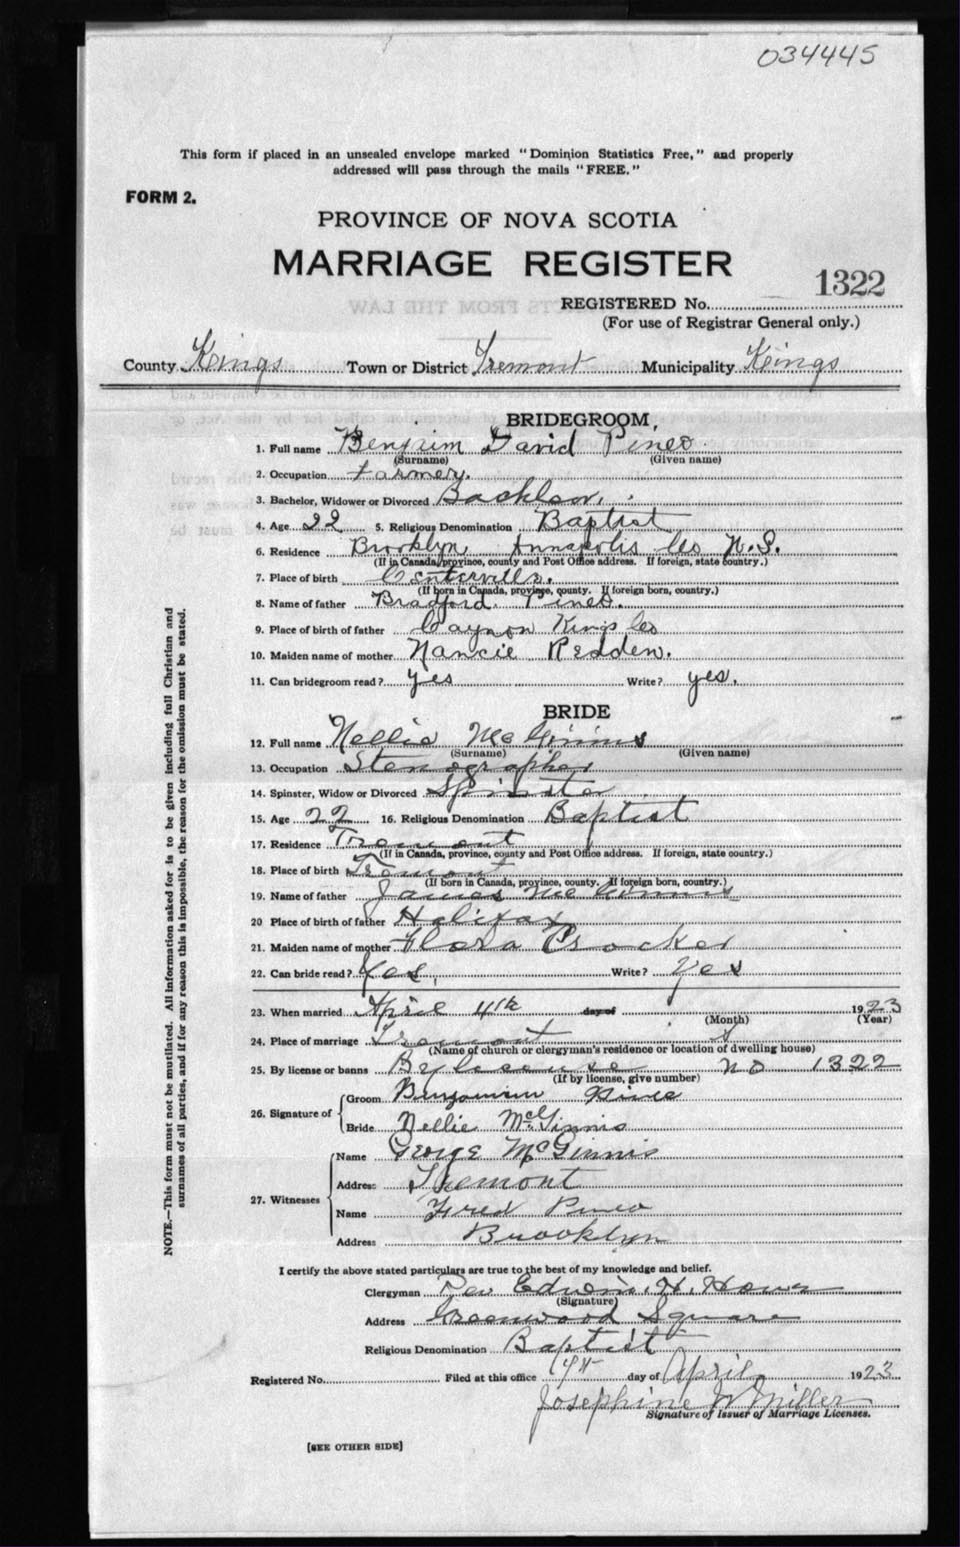 034445
This form if placed in an unsealed envelope marked "Dominion Statistics Free," and properly
addressed will pass through the mails "FREE."
FORM 2.
PROVINCE OF NOVA SCOTIA
MARRIAGE REGISTER
REGISTERED No. 1322
(For use of Registrar General only.)
County Kings Town or District Tremont Municipality Kings
BRIDEGROOM,
1. Full name Benjaim David Pineo
(Surname) (Given name)
2. Occupation Farmer.
3. Bachelor, Widower or Divorced Bachlor.
4. Age 22 5. Religious Denomination Baptist
6. Residence Brooklyn Annapolis Co N.S.
(If in Canada, province, county and Post Office address. If foreign, state country.)
7. Place of birth Centerville.
(If born in Canada, province, county. If foreign born, country.)
8. Name of father Bradford Pineo.
9. Place of birth of father Kings Co
10. Maiden name of mother Nancie Redden.
11. Can bridegroom read? yes Write? yes.
BRIDE
12. Full name Nellie McGinnis
(Surname) (Given name)
13. Occupation Stenographer
14. Spinster, Widow or Divorced Spinster
15. Age 22 16. Religious Denomination Baptist
17. Residence Tremont
(If in Canada, province, county and Post Office address. If foreign, state country.)
18. Place of birth Tremont
(If born in Canada, province, county. If foreign born, country.)
19. Name of father James McGinnis
20 Place of birth of father Halifax
21. Maiden name of mother Flora Crocker
22. Can bride read? Yes, Write? Yes
23. When married April 4th day of 1923
(Month) (Year)
24. Place of marriage Tremont
(Name of church or clergyman's residence or location of dwelling house)
25. By license or banns By license no 1322
(If by license, give number)
26. Signature of Groom Benjamin Pineo
Bride Nellie McGinnis
27. Witnesses Name George McGinnis
Address Tremont
Name Fred Pineo
Address Brooklyn
I certify the above stated particulars are true to the best of my knowledge and belief.
Clergyman Rev Edwin. H. Howe
(Signature)
Address Greenwood Square
Religious Denomination Baptist
Registered No. Filed at this office day of April 1923
Josephine Miller
Signature of Issuer of Marriage Licenses.
[SEE OTHER SIDE]
NOTE.—This form must not be mutilated. All information asked for is to be given including full Christian and
surnames of all parties, and if for any reason this is impossible, the reason for the omission must be stated.